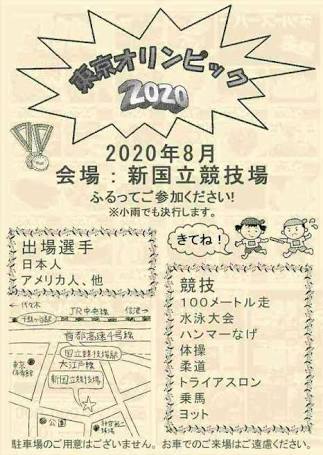 東京オリンピック
2020
2020年8月
会場：新国立競技場
ふるってご参加ください!
※小雨でも決行します。
出場選手
日本人
アメリカ人、他
きてね!
競技
100メートル走
水泳大会
ハンマーなげ
体操
柔道
トライアスロン
乗馬
ヨット
←代々木
JR中央線
信濃→
千駄ヶ谷駅
首都高速4号線
国立競技場駅
大江戸線
新国立競技場
東京
体育館
公園
神宮第二
球場
駐車場のご用意はございません。お車でのご来場はご遠慮ください。